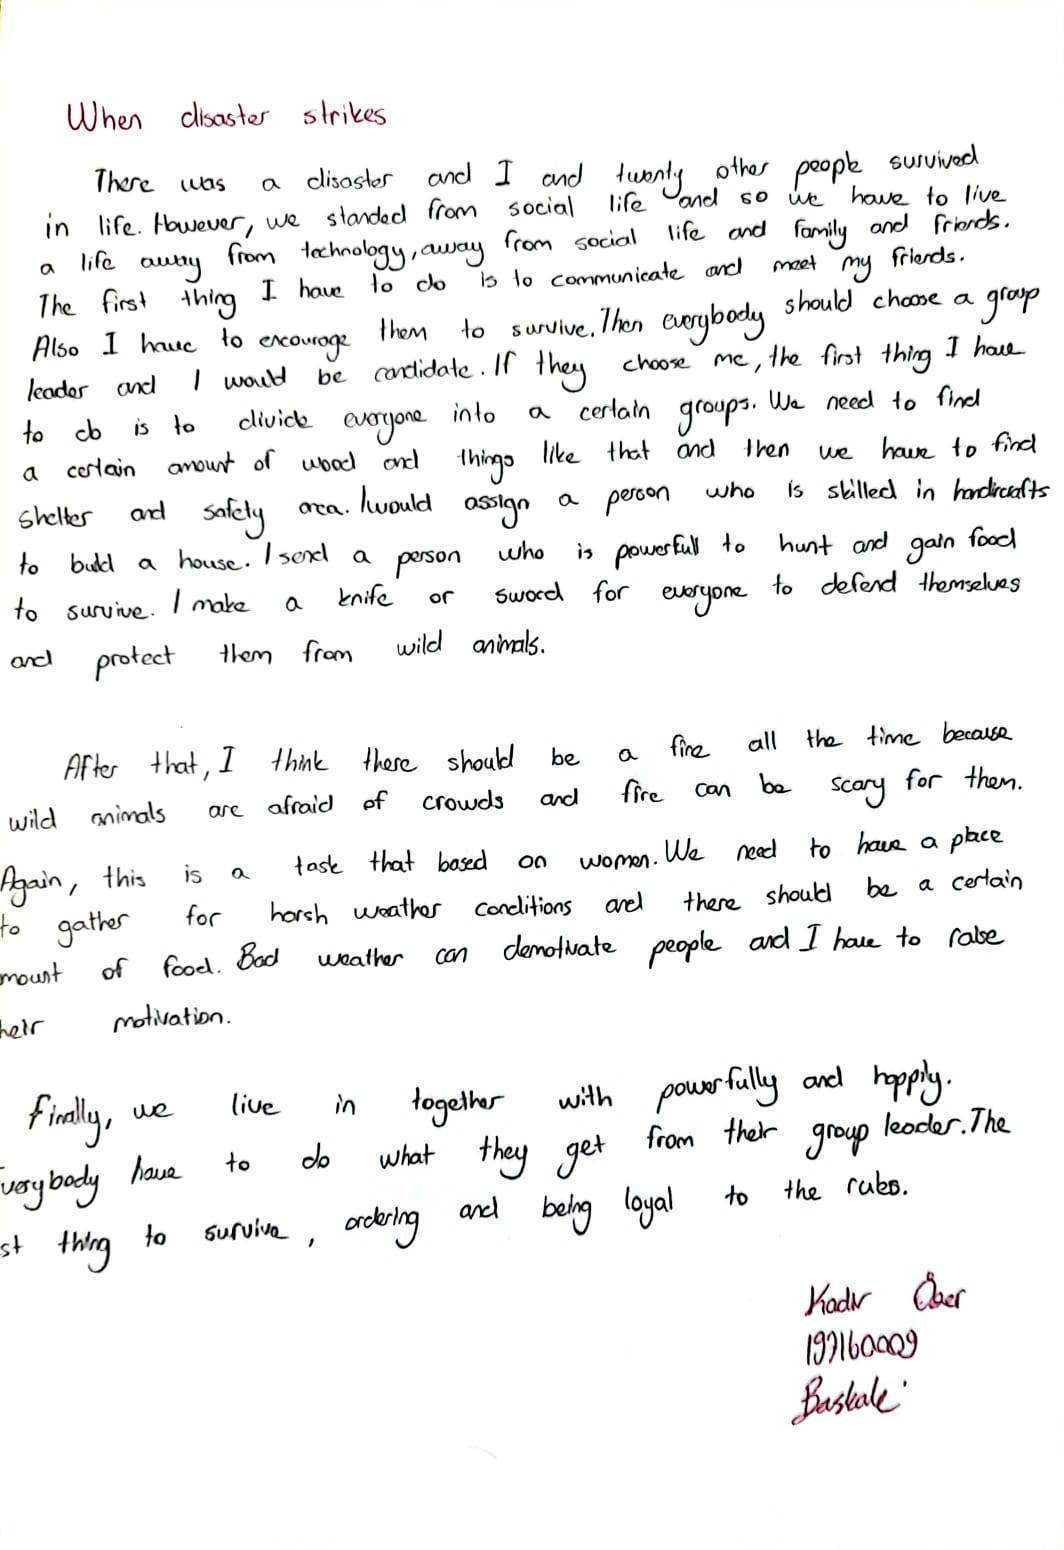 When disaster strikes
There was a disaster and I and twenty other people survived
in life. However, we standed from social life and so we have to live
a life away from technology, away from social life and family and friends.
The first thing I have to do is to communicate and meet my friends.
Also I have to encourage them to survive. Then everybody should choose a group
leader and I would be candidate. If they choose me, the first thing I have
to do is to divide everyone into a certain groups. We need to find
a certain amount of wood and things like that and then we have to find
shelter and safety area. I would assign a person who is skilled in handircrafts
to build a house. I send a person who is powerfull to hunt and gain food
to survive. I make a knife or sword for everyone to defend themselves
and protect them from wild animals.
After that, I think there should be a fire all the time because
wild animals are afraid of crowds and fire can be scary for them.
Again, this is a task that based on women. We need to have a place
to gather for harsh weather conditions and there should be a certain
mount of food. Bad weather can demotivate people and I have to raise
heir motivation.
Finally, we live in together with powerfully and happily.
verybody have to do what they get from their group leader. The
st thing to survive, ordering and being loyal to the rules.
Kadir
197160009
Baskale